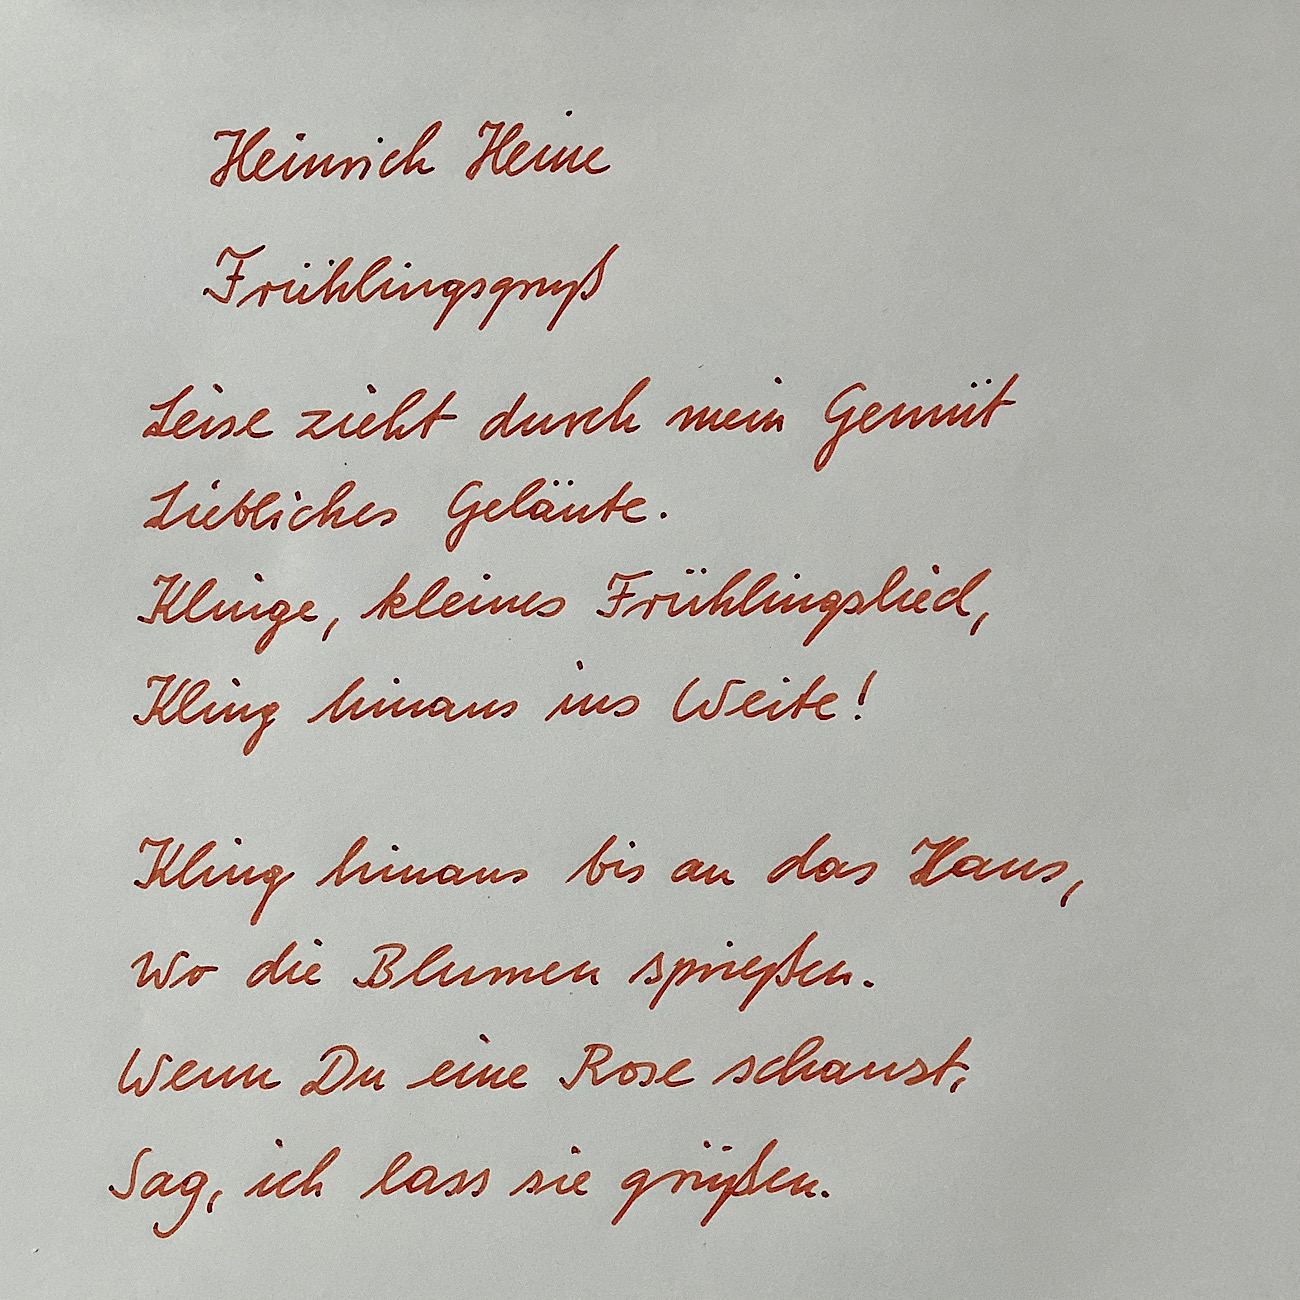 Heinrich Heine
Frühlingsgruß
Leise zieht durch mein Gemüt
Liebliches Geläute.
Klinge, kleines Frühlingslied,
Kling hinaus ins Weite!
Kling hinaus bis an das Haus,
Wo die Blumen sprießen.
Wenn Du eine Rose schaust,
Sag, ich lass sie grüßen.